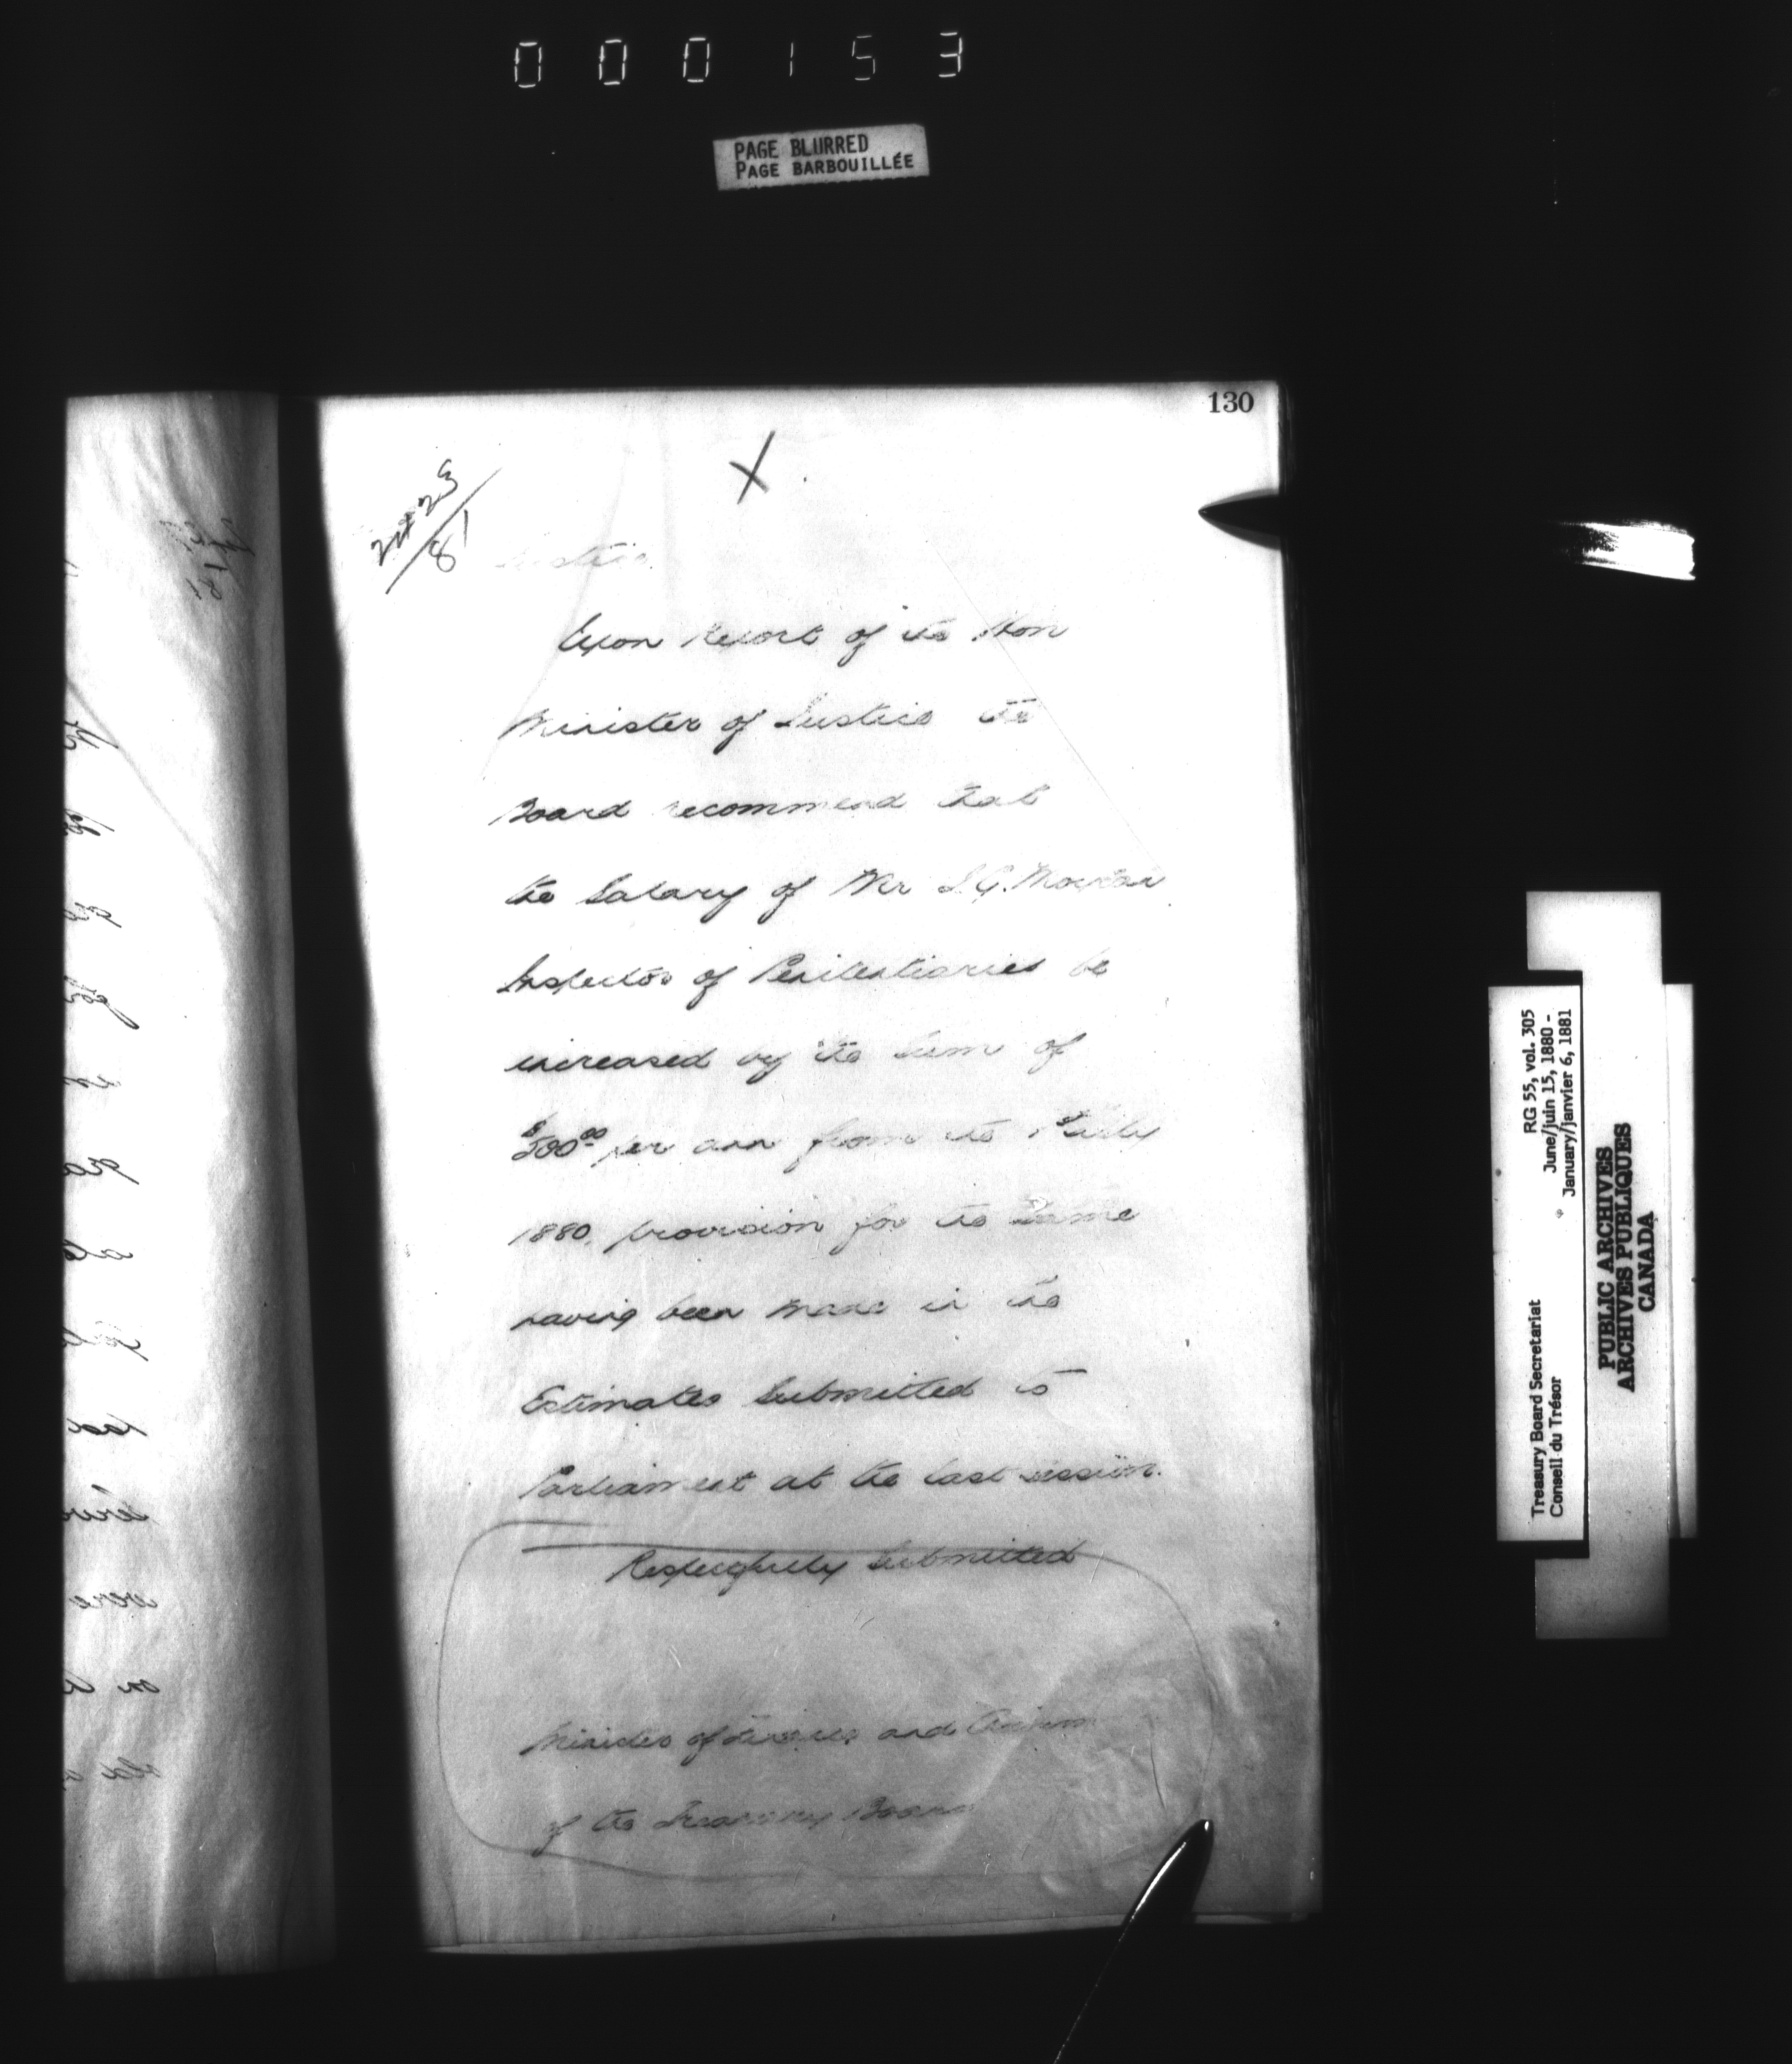 000153
PAGE BLURRED
PAGE BARBOUILLÉE
130
X
Justice
Upon Report of the Hon
Minister of Justice the
Board recommend that
the Salary of Mr J.G. Moylan
Inspector of Penitentiaries be
increased by the Sum of
$200.00 per ann from the 1st July
1880, provision for the Same
having been made in the
Estimates Submitted to
Parliament at the last session.
Respectfully Submitted
Minister of Finance and Chairman
of the Treasury Board
RG 55, vol. 305
June/juin 15, 1880 -
January/janvier 6, 1881
Treasury Board Secretariat
Conseil du Trésor
PUBLIC ARCHIVES
ARCHIVES PUBLIQUES
CANADA